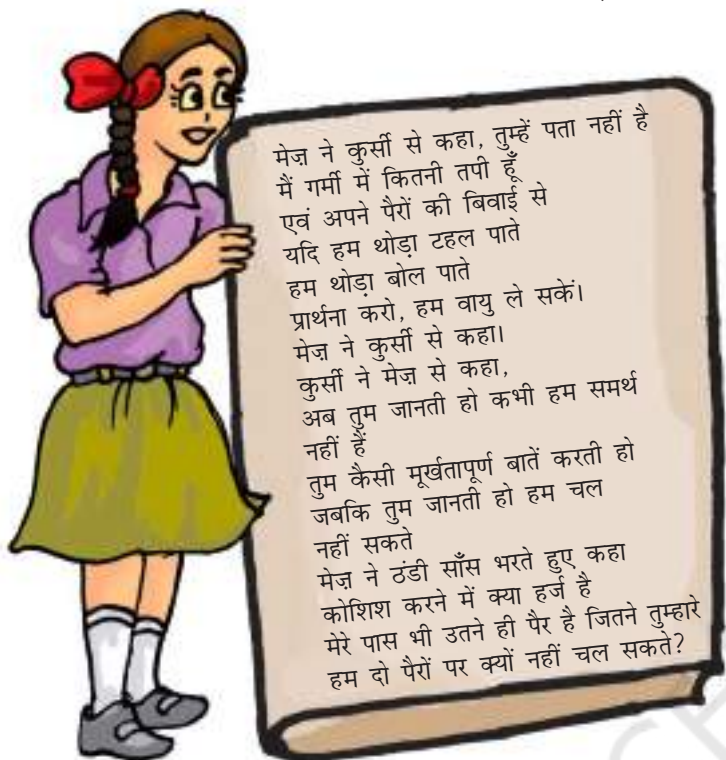 मेज़ ने कुर्सी से कहा, तुम्हें पता नहीं है
मैं गर्मी में कितनी तपी हूँ
एवं अपने पैरों की बिवाई से
यदि हम थोड़ा टहल पाते
हम थोड़ा बोल पाते
प्रार्थना करो, हम वायु ले सकें।
मेज़ ने कुर्सी से कहा।
कुर्सी ने मेज़ से कहा,
अब तुम जानती हो कभी हम समर्थ
नहीं हैं
तुम कैसी मूर्खतापूर्ण बातें करती हो
जबकि तुम जानती हो हम चल
नहीं सकते
मेज़ ने ठंडी साँस भरते हुए कहा
कोशिश करने में क्या हर्ज है
मेरे पास भी उतने ही पैर है जितने तुम्हारे
हम दो पैरों पर क्यों नहीं चल सकते?